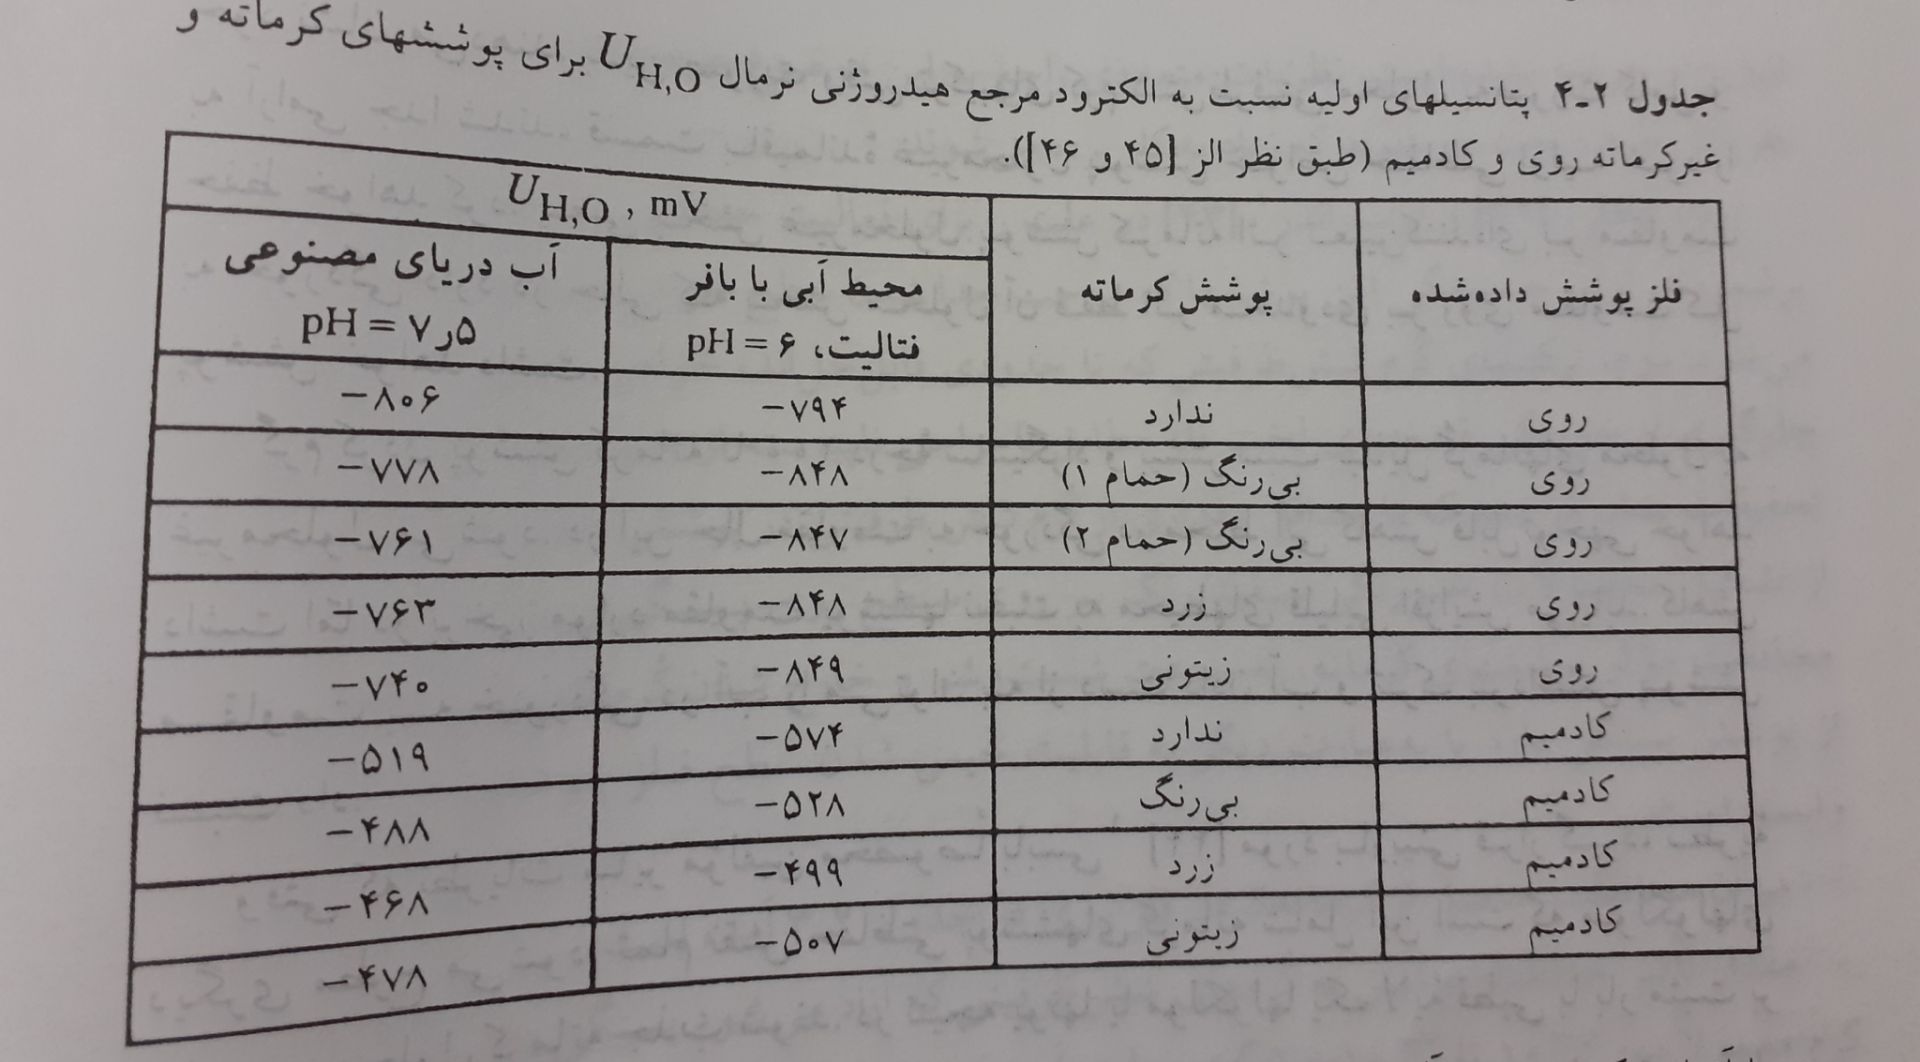 جدول ۲ـ۴ پتانسیلهای اولیه نسبت به الکترود مرجع هیدروژنی نرمال U_H,O برای پوششهای کرماته و
غیرکرماته روی و کادمیم (طبق نظر الز [۴۵ و ۴۶]).
U_H,O , mV
فلز پوشش داده‌شده پوشش کرماته محیط آبی با بافر آب دریای مصنوعی
فتالیت، pH = ۶ pH = ۷ر۵
روی ندارد −۷۹۴ −۸۰۶
روی بی‌رنگ (حمام ۱) −۸۴۸ −۷۷۸
روی بی‌رنگ (حمام ۲) −۸۴۷ −۷۶۱
روی زرد −۸۴۸ −۷۶۳
روی زیتونی −۸۴۹ −۷۴۰
کادمیم ندارد −۵۷۴ −۵۱۹
کادمیم بی‌رنگ −۵۲۸ −۴۸۸
کادمیم زرد −۴۹۹ −۴۶۸
کادمیم زیتونی −۵۰۷ −۴۷۸